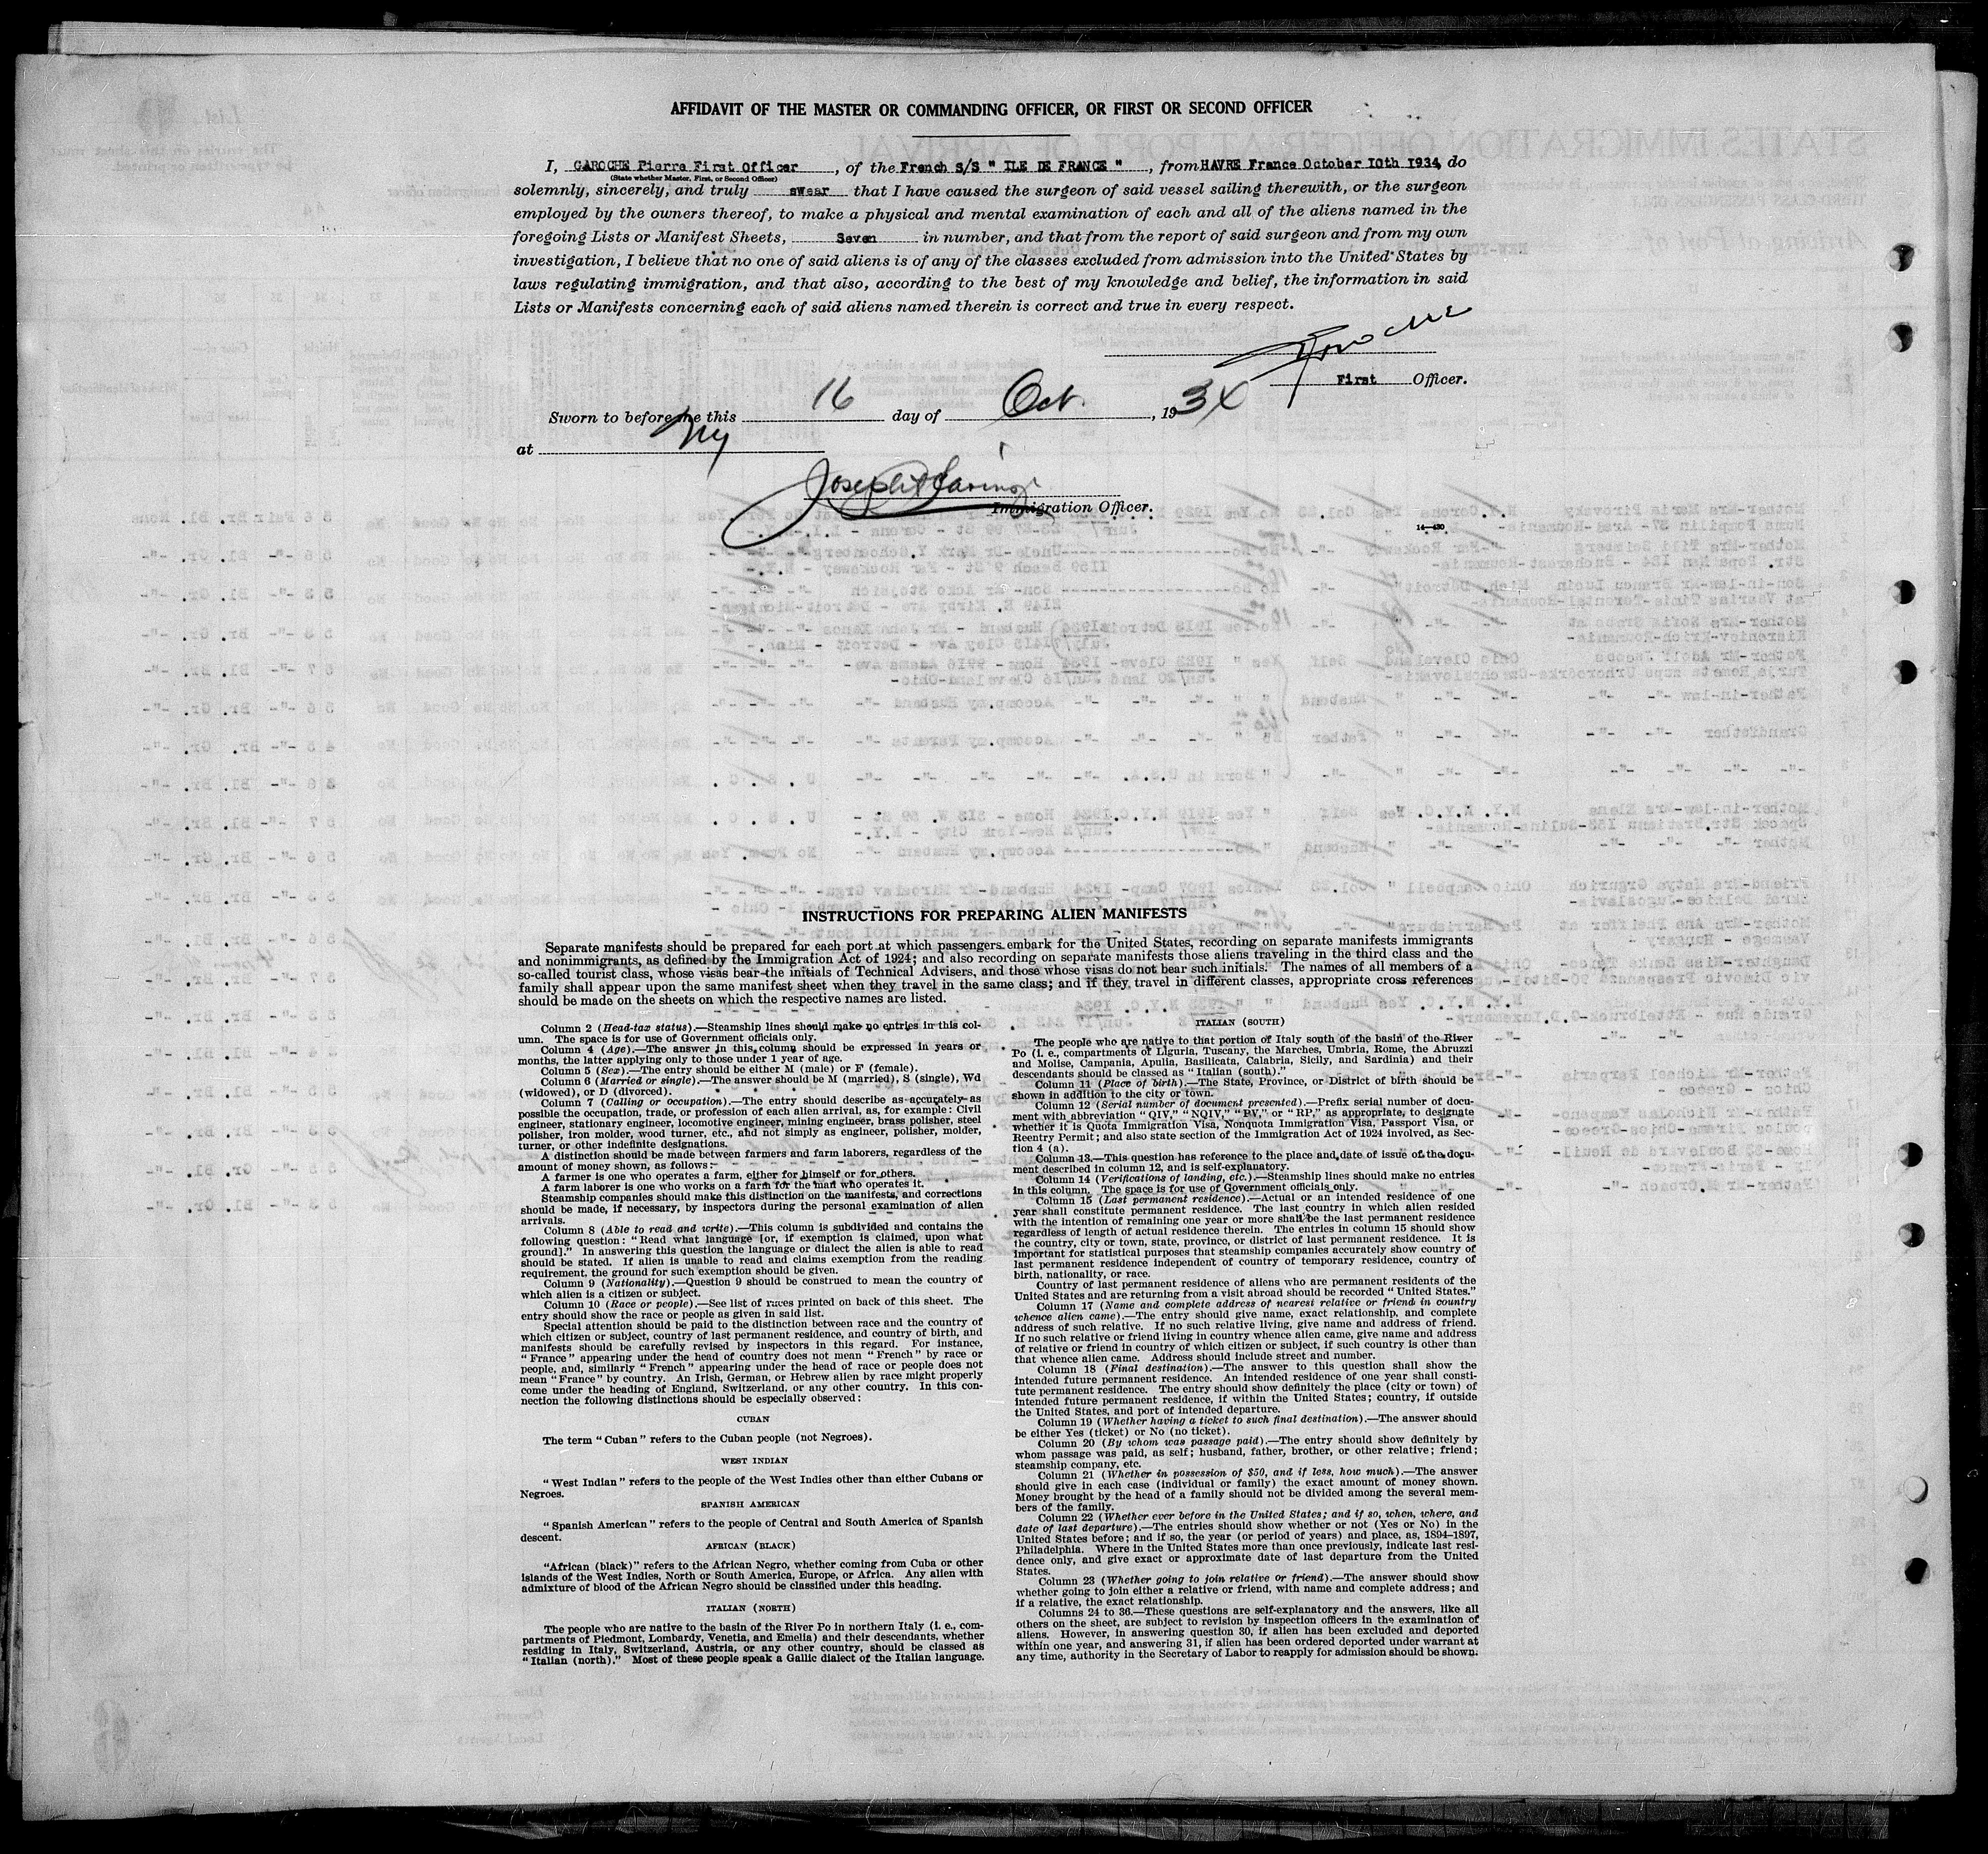 AFFIDAVIT OF THE MASTER OR COMMANDING OFFICER, OR FIRST OR SECOND OFFICER
I, GAROCHE Pierre First Officer, of the French S/S " ILE DE FRANCE ", from HAVRE France October 10th 1934, do
(State whether Master, First, or Second Officer)
solemnly, sincerely, and truly swear that I have caused the surgeon of said vessel sailing therewith, or the surgeon
employed by the owners thereof, to make a physical and mental examination of each and all of the aliens named in the
foregoing Lists or Manifest Sheets, Seven in number, and that from the report of said surgeon and from my own
investigation, I believe that no one of said aliens is of any of the classes excluded from admission into the United States by
laws regulating immigration, and that also, according to the best of my knowledge and belief, the information in said
Lists or Manifests concerning each of said aliens named therein is correct and true in every respect.
First Officer.
Sworn to before me this 16 day of Oct., 1934
at NY
Joseph
Immigration Officer.
14—430
INSTRUCTIONS FOR PREPARING ALIEN MANIFESTS
Separate manifests should be prepared for each port at which passengers embark for the United States, recording on separate manifests immigrants
and nonimmigrants, as defined by the Immigration Act of 1924; and also recording on separate manifests those aliens traveling in the third class and the
so-called tourist class, whose visas bear the initials of Technical Advisers, and those whose visas do not bear such initials. The names of all members of a
family shall appear upon the same manifest sheet when they travel in the same class; and if they travel in different classes, appropriate cross references
should be made on the sheets on which the respective names are listed.
Column 2 (Head-tax status).—Steamship lines should make no entries in this col-
umn. The space is for use of Government officials only.
Column 4 (Age).—The answer in this column should be expressed in years or
months, the latter applying only to those under 1 year of age.
Column 5 (Sex).—The entry should be either M (male) or F (female).
Column 6 (Married or single).—The answer should be M (married), S (single), Wd
(widowed), or D (divorced).
Column 7 (Calling or occupation).—The entry should describe as accurately as
possible the occupation, trade, or profession of each alien arrival, as, for example: Civil
engineer, stationary engineer, locomotive engineer, mining engineer, brass polisher, steel
polisher, iron molder, wood turner, etc., and not simply as engineer, polisher, molder,
turner, or other indefinite designations.
A distinction should be made between farmers and farm laborers, regardless of the
amount of money shown, as follows:
A farmer is one who operates a farm, either for himself or for others.
A farm laborer is one who works on a farm for the man who operates it.
Steamship companies should make this distinction on the manifests, and corrections
should be made, if necessary, by inspectors during the personal examination of alien
arrivals.
Column 8 (Able to read and write).—This column is subdivided and contains the
following question: "Read what language [or, if exemption is claimed, upon what
ground]." In answering this question the language or dialect the alien is able to read
should be stated. If alien is unable to read and claims exemption from the reading
requirement, the ground for such exemption should be given.
Column 9 (Nationality).—Question 9 should be construed to mean the country of
which alien is a citizen or subject.
Column 10 (Race or people).—See list of races printed on back of this sheet. The
entry should show the race or people as given in said list.
Special attention should be paid to the distinction between race and the country of
which citizen or subject, country of last permanent residence, and country of birth, and
manifests should be carefully revised by inspectors in this regard. For instance,
"France" appearing under the head of country does not mean "French" by race or
people, and, similarly "French" appearing under the head of race or people does not
mean "France" by country. An Irish, German, or Hebrew alien by race might properly
come under the heading of England, Switzerland, or any other country. In this con-
nection the following distinctions should be especially observed:
CUBAN
The term "Cuban" refers to the Cuban people (not Negroes).
WEST INDIAN
"West Indian" refers to the people of the West Indies other than either Cubans or
Negroes.
SPANISH AMERICAN
"Spanish American" refers to the people of Central and South America of Spanish
descent.
AFRICAN (BLACK)
"African (black)" refers to the African Negro, whether coming from Cuba or other
islands of the West Indies, North or South America, Europe, or Africa. Any alien with
admixture of blood of the African Negro should be classified under this heading.
ITALIAN (NORTH)
The people who are native to the basin of the River Po in northern Italy (i. e., com-
partments of Piedmont, Lombardy, Venetia, and Emelia) and their descendants, whether
residing in Italy, Switzerland, Austria, or any other country, should be classed as
"Italian (north)." Most of these people speak a Gallic dialect of the Italian language.
ITALIAN (SOUTH)
The people who are native to that portion of Italy south of the basin of the River
Po (i. e., compartments of Liguria, Tuscany, the Marches, Umbria, Rome, the Abruzzi
and Molise, Campania, Apulia, Basilicata, Calabria, Sicily, and Sardinia) and their
descendants should be classed as "Italian (south)."
Column 11 (Place of birth).—The State, Province, or District of birth should be
shown in addition to the city or town.
Column 12 (Serial number of document presented).—Prefix serial number of docu-
ment with abbreviation "QIV," "NQIV," "PV," or "RP," as appropriate, to designate
whether it is Quota Immigration Visa, Nonquota Immigration Visa, Passport Visa, or
Reentry Permit; and also state section of the Immigration Act of 1924 involved, as Sec-
tion 4 (a).
Column 13.—This question has reference to the place and date of issue of the docu-
ment described in column 12, and is self-explanatory.
Column 14 (Verifications of landing, etc.).—Steamship lines should make no entries
in this column. The space is for use of Government officials only.
Column 15 (Last permanent residence).—Actual or an intended residence of one
year shall constitute permanent residence. The last country in which alien resided
with the intention of remaining one year or more shall be the last permanent residence
regardless of length of actual residence therein. The entries in column 15 should show
the country, city or town, state, province, or district of last permanent residence. It is
important for statistical purposes that steamship companies accurately show country of
last permanent residence independent of country of temporary residence, country of
birth, nationality, or race.
Country of last permanent residence of aliens who are permanent residents of the
United States and are returning from a visit abroad should be recorded "United States."
Column 17 (Name and complete address of nearest relative or friend in country
whence alien came).—The entry should give name, exact relationship, and complete
address of such relative. If no such relative living, give name and address of friend.
If no such relative or friend living in country whence alien came, give name and address
of relative or friend in country of which citizen or subject, if such country is other than
that whence alien came. Address should include street and number.
Column 18 (Final destination).—The answer to this question shall show the
intended future permanent residence. An intended residence of one year shall consti-
tute permanent residence. The entry should show definitely the place (city or town) of
intended future permanent residence, if within the United States; country, if outside
the United States, and port of intended departure.
Column 19 (Whether having a ticket to such final destination).—The answer should
be either Yes (ticket) or No (no ticket).
Column 20 (By whom was passage paid).—The entry should show definitely by
whom passage was paid, as self; husband, father, brother, or other relative; friend;
steamship company, etc.
Column 21 (Whether in possession of $50, and if less, how much).—The answer
should give in each case (individual or family) the exact amount of money shown.
Money brought by the head of a family should not be divided among the several mem-
bers of the family.
Column 22 (Whether ever before in the United States; and if so, when, where, and
date of last departure).—The entries should show whether or not (Yes or No) in the
United States before; and if so, the year (or period of years) and place, as, 1894–1897,
Philadelphia. Where in the United States more than once previously, indicate last resi-
dence only, and give exact or approximate date of last departure from the United
States.
Column 23 (Whether going to join relative or friend).—The answer should show
whether going to join either a relative or friend, with name and complete address; and
if a relative, the exact relationship.
Columns 24 to 36.—These questions are self-explanatory and the answers, like all
others on the sheet, are subject to revision by inspection officers in the examination of
aliens. However, in answering question 30, if alien has been excluded and deported
within one year, and answering 31, if alien has been ordered deported under warrant at
any time, authority in the Secretary of Labor to reapply for admission should be shown.